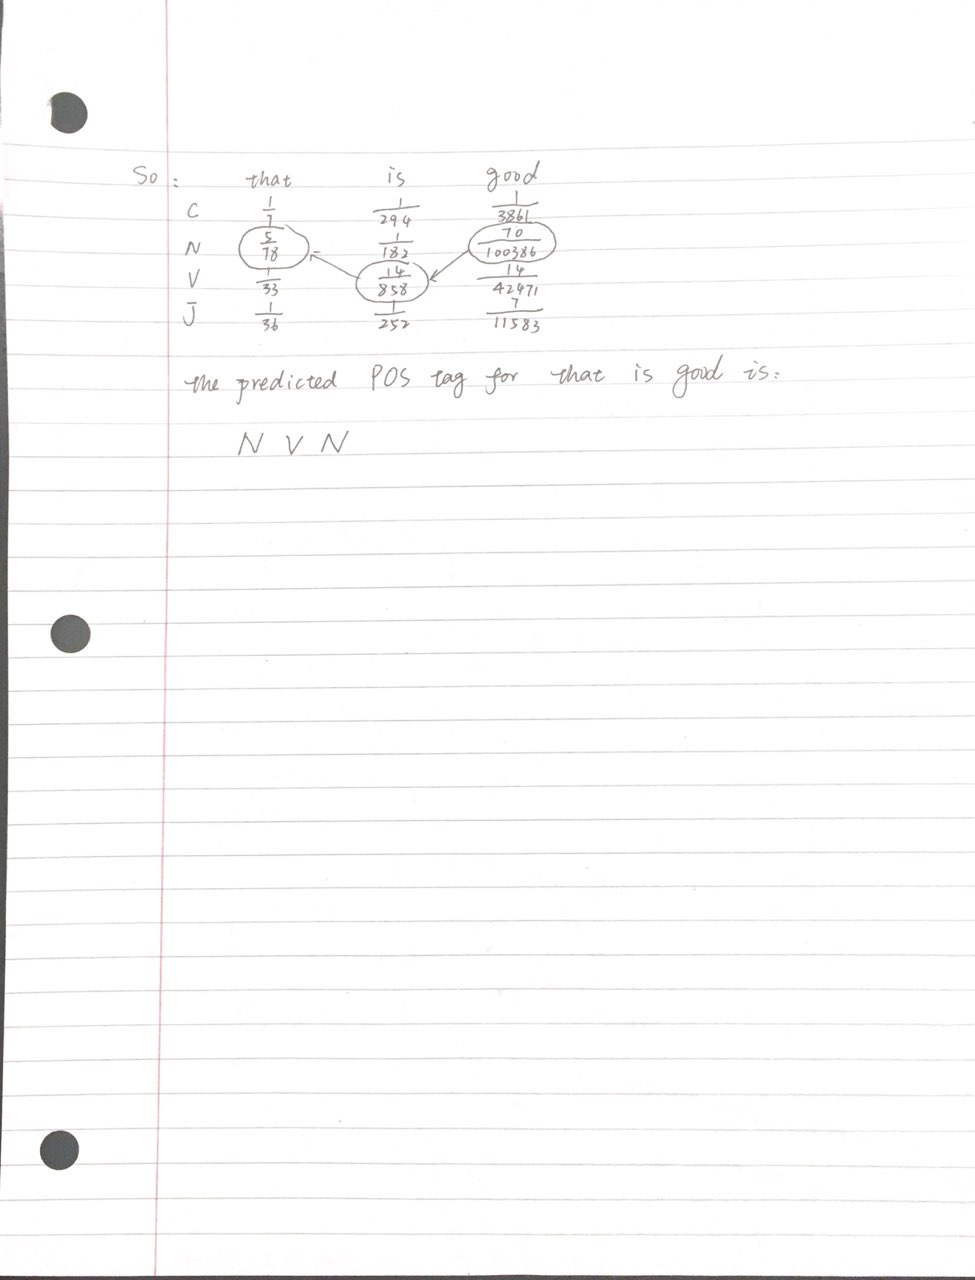 So : that is good
C 1/7 1/294 1/3861
N 5/78 1/182 70/100386
V 1/33 14/858 14/42471
J 1/36 1/252 7/11583
the predicted POS tag for that is good is:
N V N